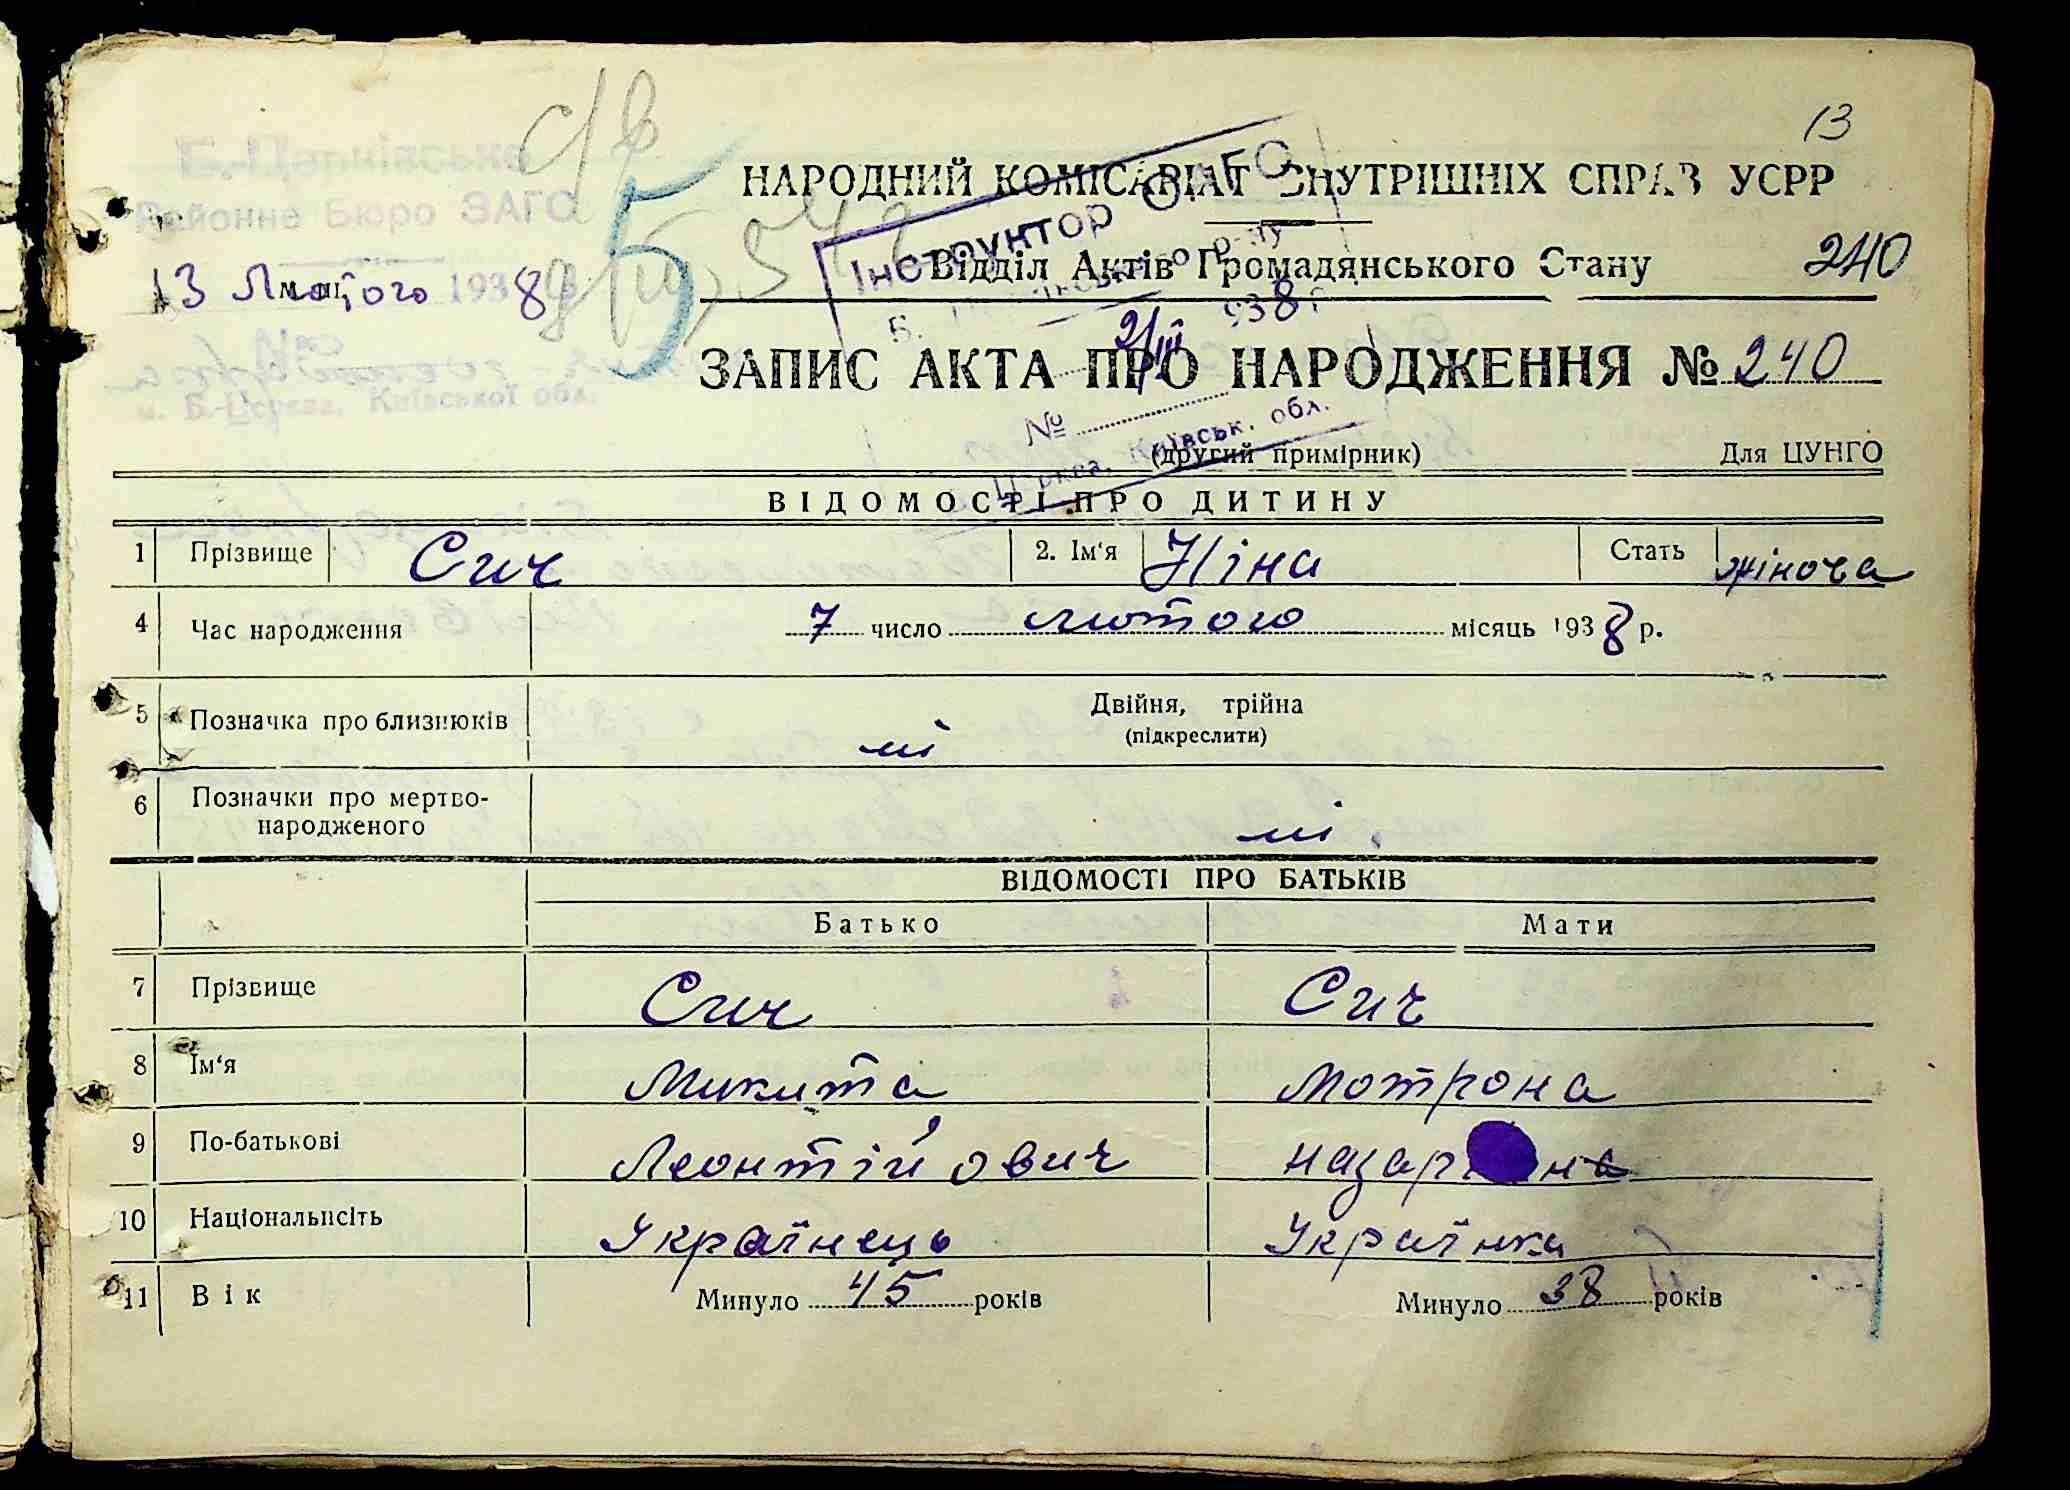 13
Б.-Церківське
Районне Бюро ЗАГС
13 Лютого 1938
м. Б.-Церква, Київської обл.
с/в
5
НАРОДНИЙ КОМІСАРІАТ ВНУТРІШНІХ СПРАВ УСРР
Інструктор
Відділ Актів Громадянського Стану 240
2/III 938 р.
ЗАПИС АКТА ПРО НАРОДЖЕННЯ № 240
№
Церква, Київськ. обл.
(другий примірник) Для ЦУНГО
ВІДОМОСТІ ПРО ДИТИНУ
1 Прізвище Сич 2. Ім'я Ніна Стать жіноча
4 Час народження 7 число лютого місяць 1938 р.
5 Позначка про близнюків ні Двійня, трійна
(підкреслити)
6 Позначки про мертво-
народженого ні.
ВІДОМОСТІ ПРО БАТЬКІВ
Батько Мати
7 Прізвище Сич Сич
8 Ім'я Микита Мотрона
9 По-батькові Леонтійович
10 Національність Українець Українка
11 Вік Минуло 45 років Минуло 38 років